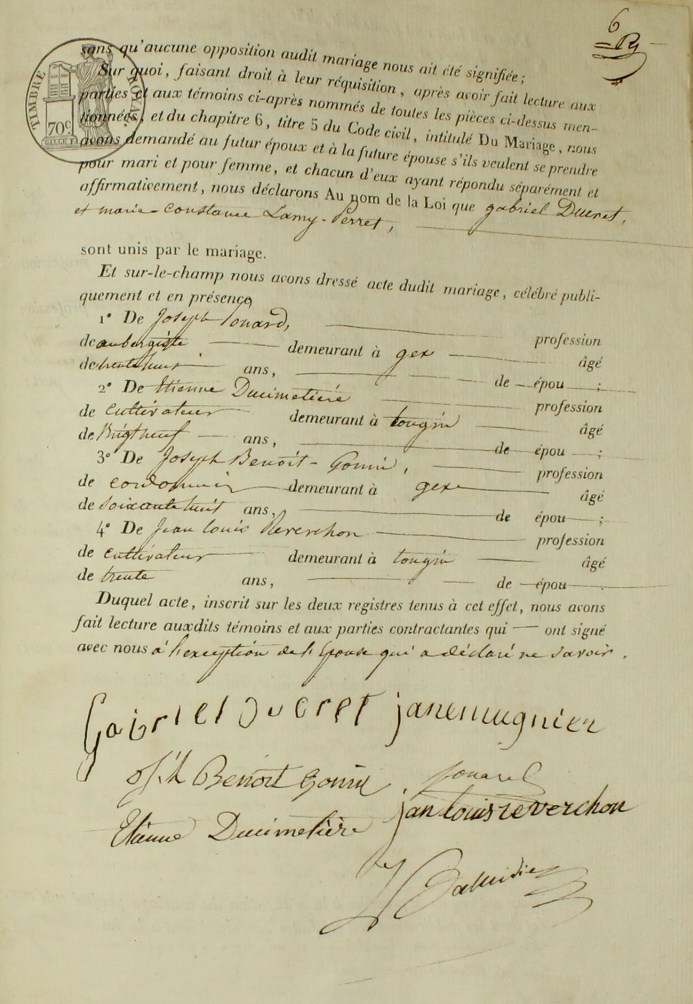 6
TIMBRE ROYAL
70c
sans qu'aucune opposition audit mariage nous ait été signifiée ;
Sur quoi, faisant droit à leur réquisition, après avoir fait lecture aux
parties et aux témoins ci-après nommés de toutes les pièces ci-dessus men-
tionnées, et du chapitre 6, titre 5 du Code civil, intitulé Du Mariage, nous
avons demandé au futur époux et à la future épouse s'ils veulent se prendre
pour mari et pour femme, et chacun d'eux ayant répondu séparément et
affirmativement, nous déclarons Au nom de la Loi que gabriel Ducret,
et marie-constance Lamy-Perret,
sont unis par le mariage.
Et sur-le-champ nous avons dressé acte dudit mariage, célébré publi-
quement et en présence
1° De Joseph , profession
de aubergiste demeurant à gex âgé
de trente huit ans, de — épou — ;
2° De Etienne Ducimetière profession
de cultivateur demeurant à tougin âgé
de Vingt neuf ans, de — épou — ;
3° De Joseph Benoit-Gonin, profession
de cordonnier demeurant à gex âgé
de soixante huit ans, de épou — ;
4° De Jean louis Reverchon profession
de cultivateur demeurant à tougin âgé
de trente ans, de — épou —
Duquel acte, inscrit sur les deux registres tenus à cet effet, nous avons
fait lecture auxdits témoins et aux parties contractantes qui — ont signé
avec nous à l'exception de l'épouse qui a déclaré ne savoir.
Gabriel Ducret janemugnier
Benoit Gonin
Etienne Ducimetière jan louis reverchon